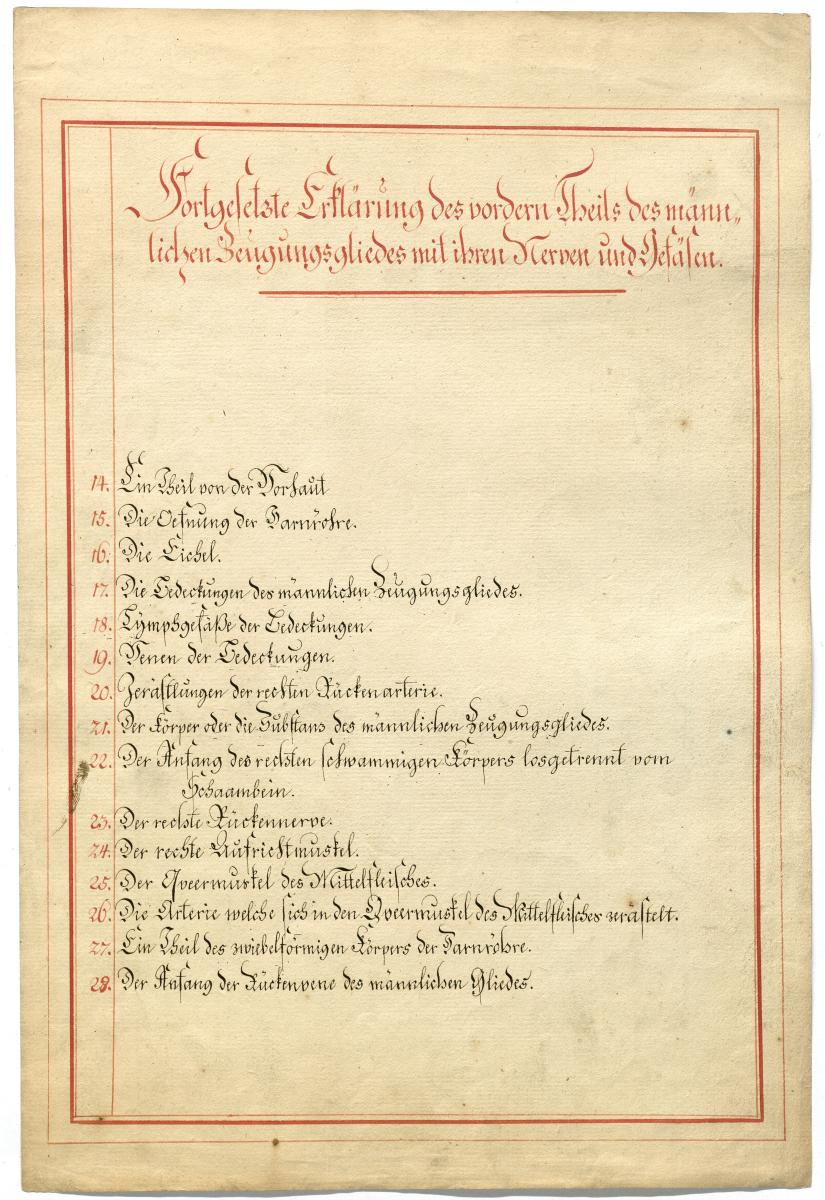 Fortgesetzte Erklärung des vordern Theils des männ„
lichen Zeugungsgliedes mit ihren Nerven und Gefäsen.
14. Ein Theil von der Vorhaut
15. Die Oefnung der Harnröhre.
16. Die Eichel.
17. Die Bedeckungen des männlichen Zeugungsgliedes.
18. Lymphgefäße der Bedeckungen.
19. Venen der Bedeckungen.
20. Zerästlungen der rechten Rückenarterie.
21. Der Körper oder die Substans des männlichen Zeugungsgliedes.
22. Der Anfang des rechten schwammigen Körpers losgetrennt vom
Schaambein.
23. Der rechte Rückennerve.
24. Der rechte Aufrichtmuskel.
25. Der Qveermuskel des Mittelfleisches.
26. Die Arterie welche sich in den Qveermuskel des Mittelfleisches zerästelt.
27. Ein Theil des zwiebelförmigen Körpers der Harnröhre.
28. Der Anfang der Rückenvene des männlichen Gliedes.